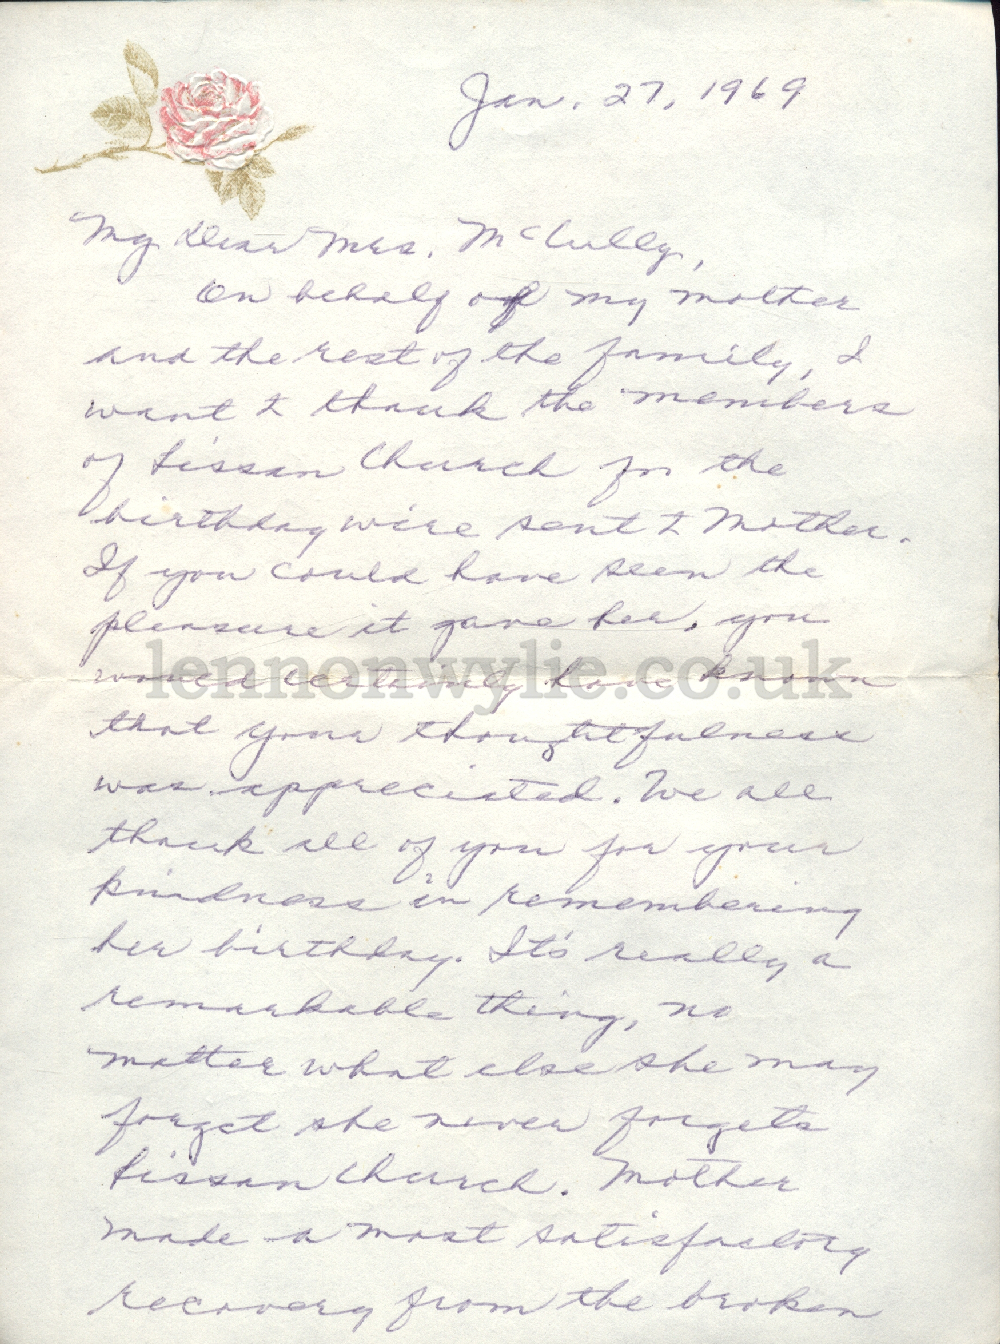 Jan. 27, 1969
My Dear Mrs. McCully,
On behalf of my mother
and the rest of the family, I
want to thank the members
of Lissan Church for the
birthday wire sent to Mother.
If you could have seen the
pleasure it gave her, you
would certainly have known
that your thoughtfulness
was appreciated. We all
thank all of you for your
kindness in remembering
her birthday. It's really a
remarkable thing, no
matter what else she may
forget she never forgets
Lissan Church. Mother
made a most satisfactory
recovery from the broken
lennonwylie.co.uk